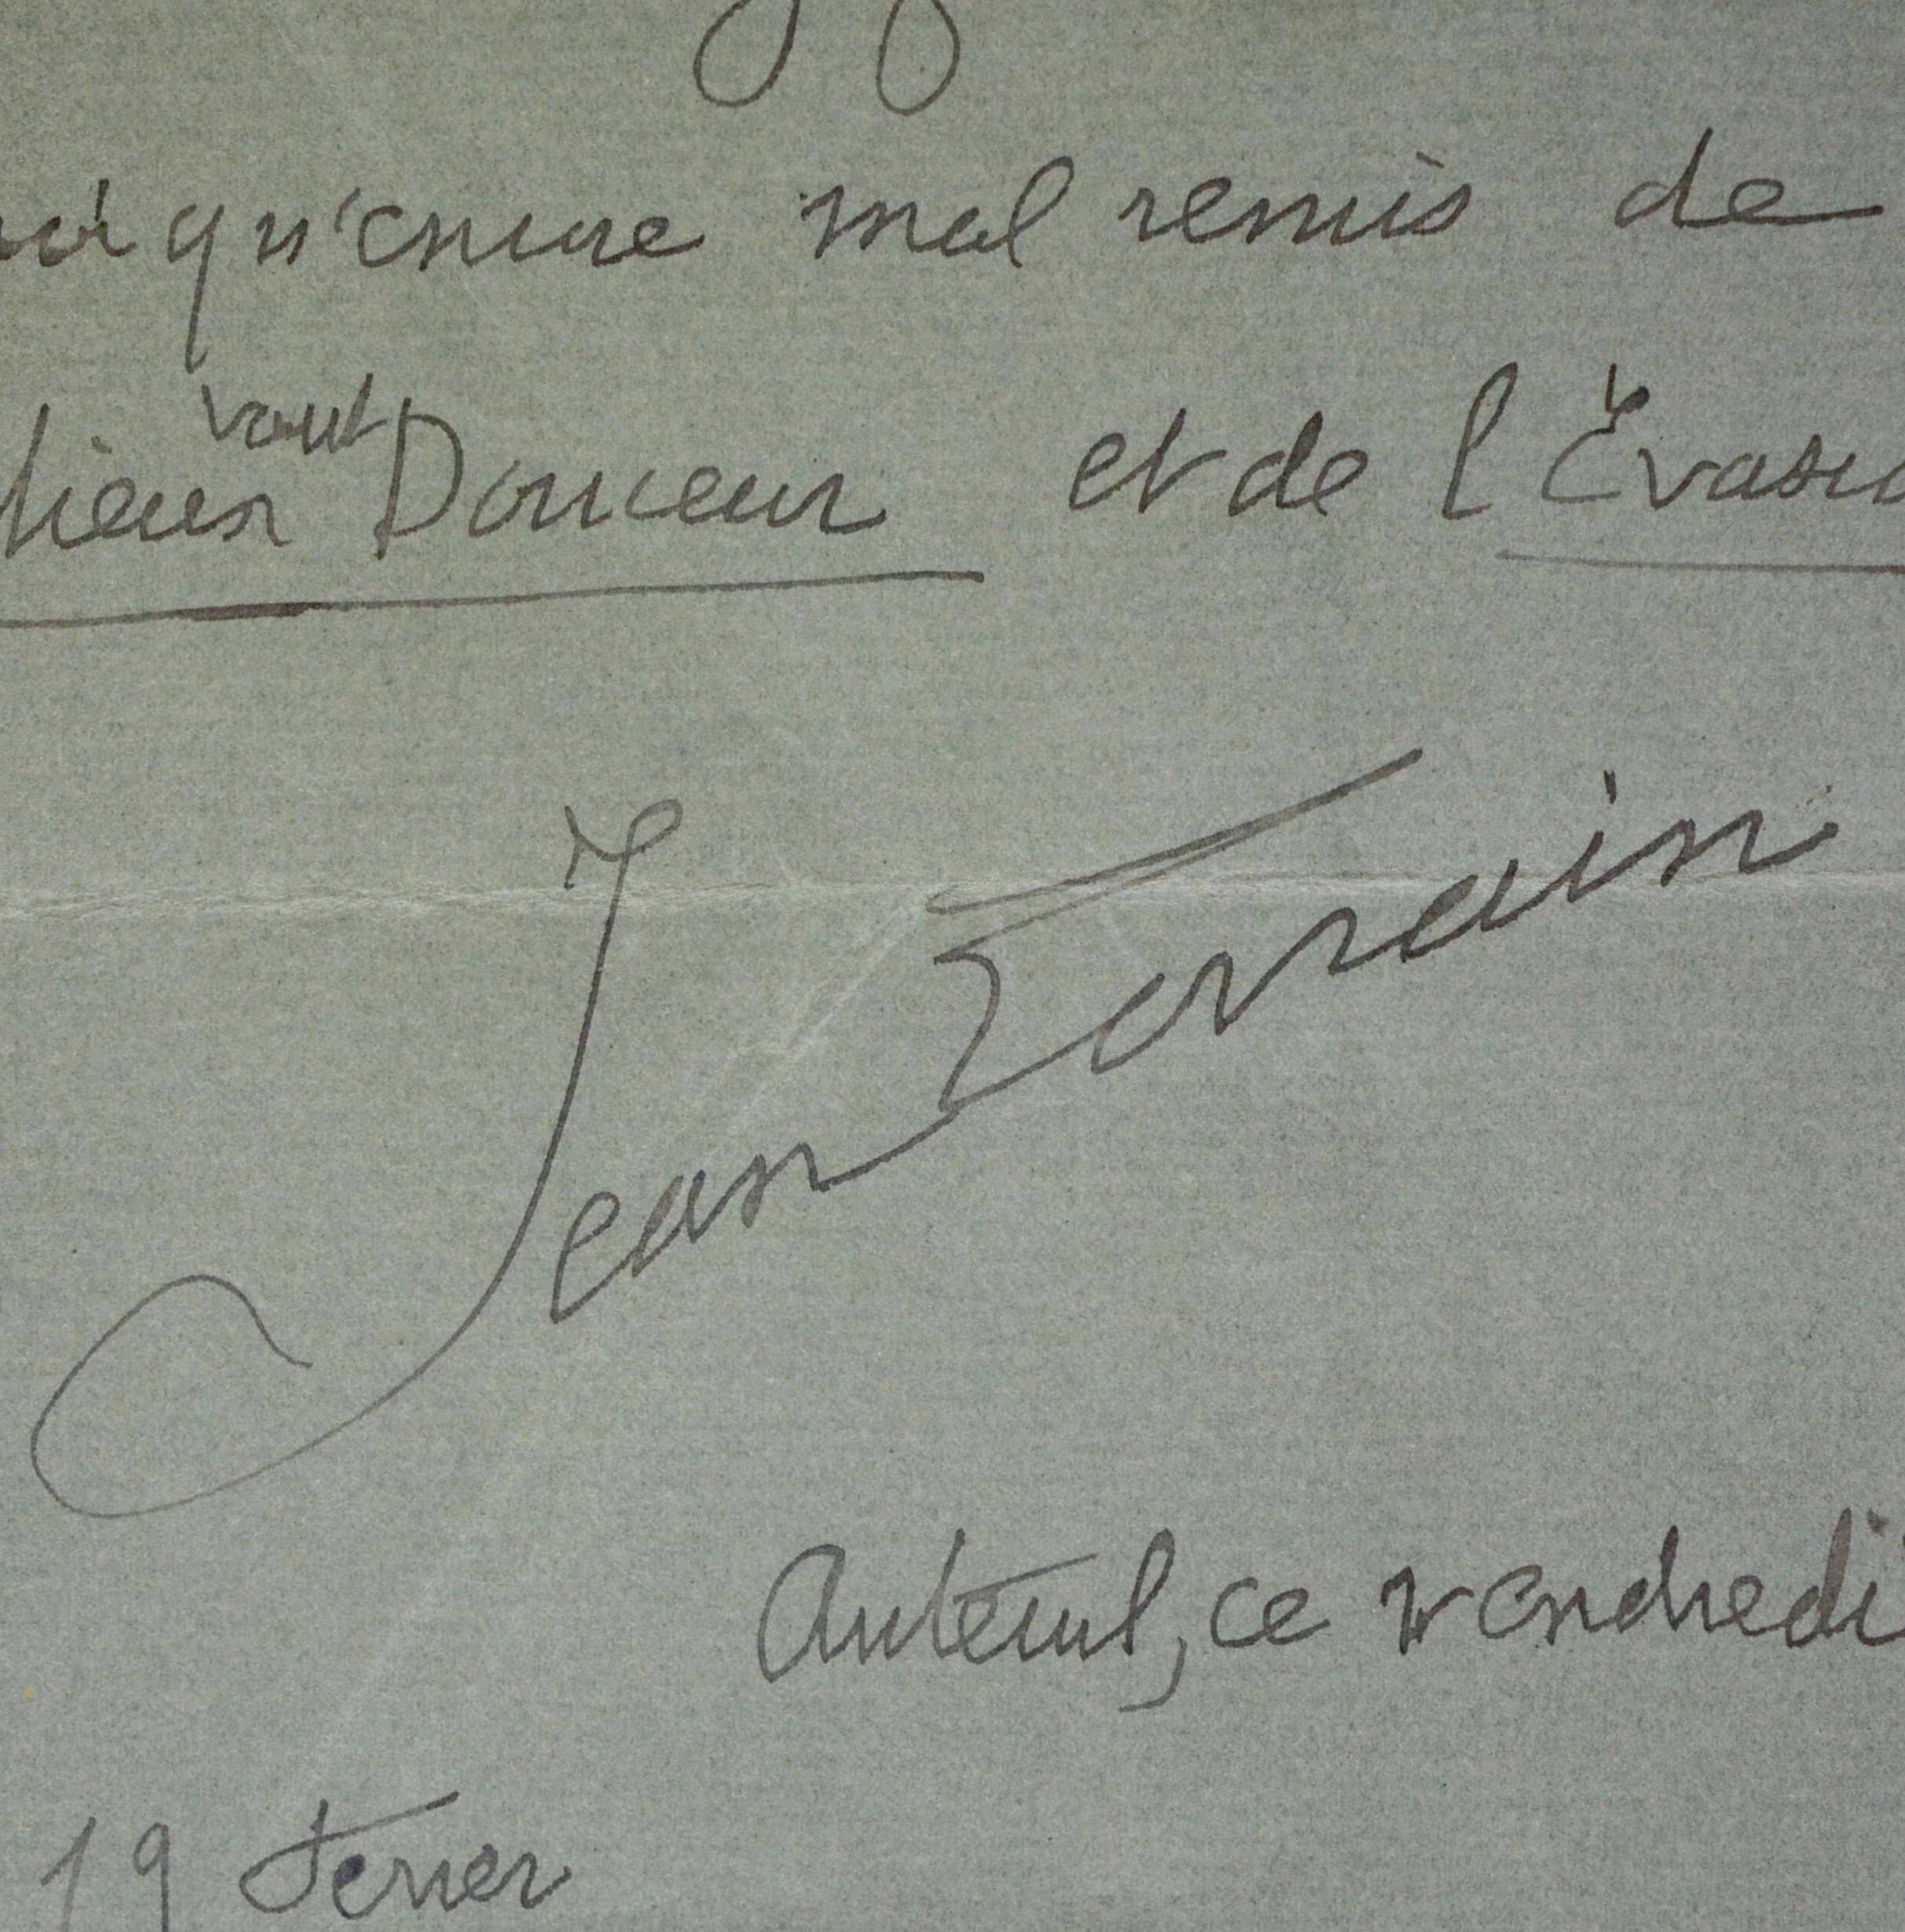 oiqu'encore mal remis de
Mieux vaut Douceur et de l'Évasio
Jean Lorrain
Auteuil, ce vendredi
19 fevrier